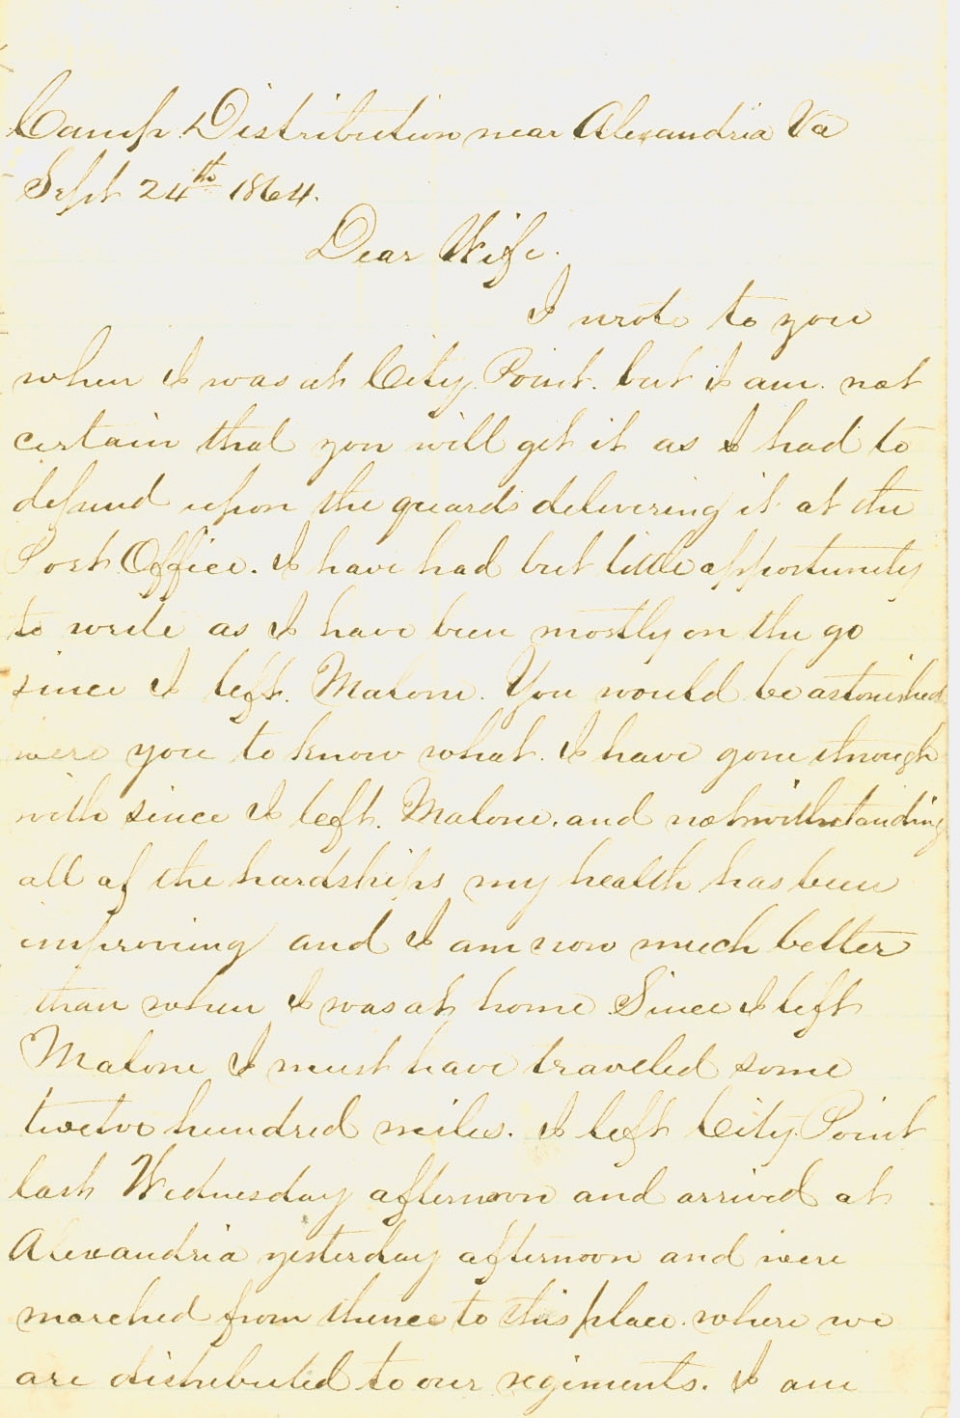 Camp Distribution near Alexandria Va
Sept 24th 1864.
Dear Wife.
I wrote to you
when I was at City Point. but I am. not
certain that you will get it as I had to
depend upon the guards delivering it at the
Post Office. I have had but little opportunity
to write as I have been mostly on the go
since I left. Malone. You would be astonished
were you to know what. I have gone through
with since I left. Malone. and notwithstanding
all of the hardships my health has been
improving and I am now much better
than when I was at home. Since I left
Malone I must have traveled some
twelve hundred miles. I left City Point
last Wednesday afternoon and arrived at
Alexandria yesterday afternoon and were
marched from thence to this place. where we
are distributed to our regiments. I am